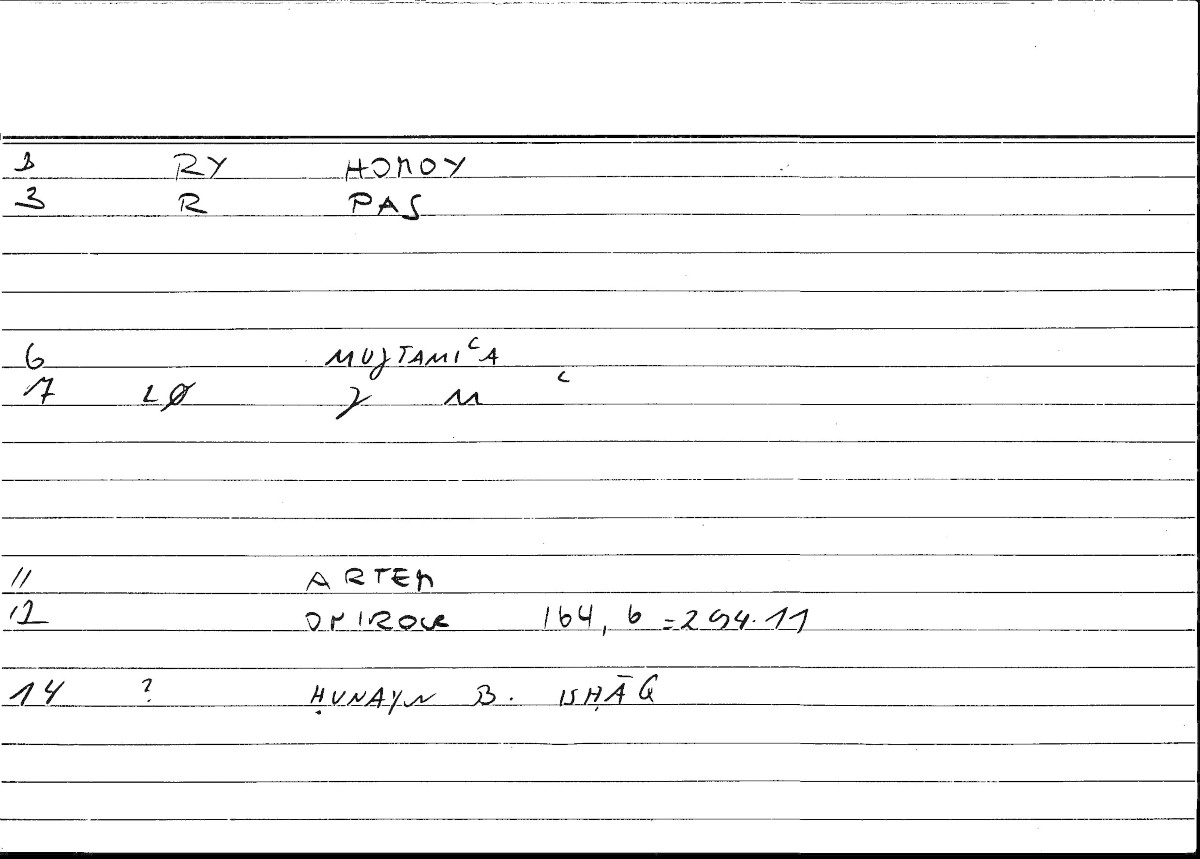 3 RY HOMOY
3 R PAS
6 MUJTAMIʿA
7 LØ J M ʿ
11 ARTEM
12 ONIROCR 164, 6 = 294.11
14 ? ḤUNAYN B. ISḤĀQ